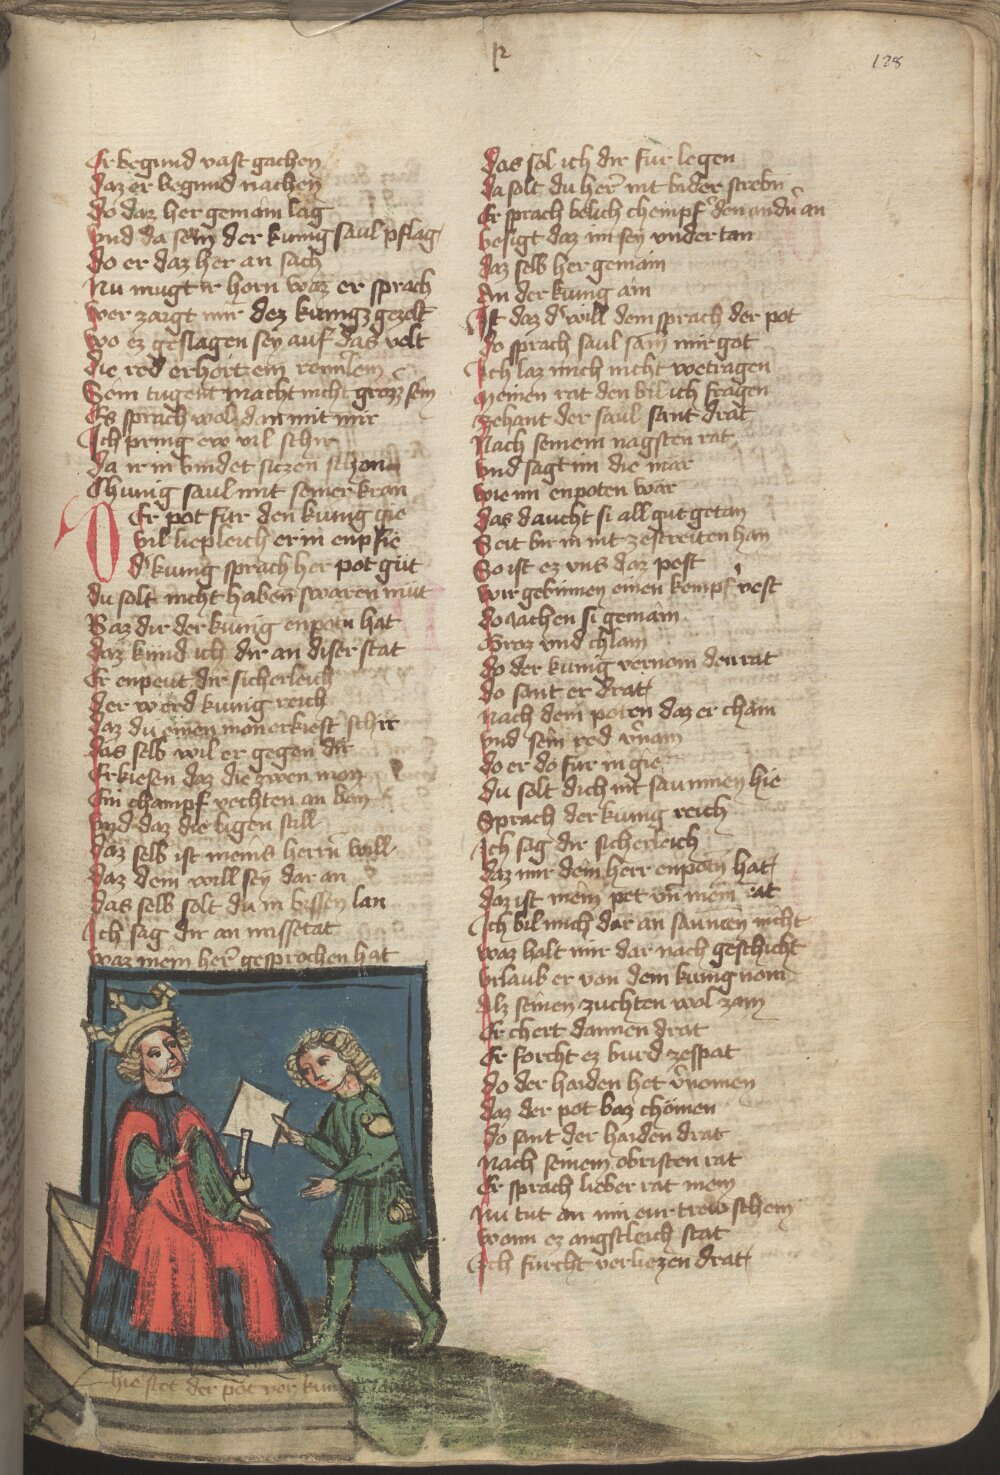 128
Er begund vast gachen
daz er begund nachen
do daz her gemain lag
vnd da sein der kunig saul pflag
do er daz her an sach
Nu mugt ir horn waz er sprach
wer zaigt mir dez kunigz gezelt
wo ez geslagen sey auf das velt
die red erhort ein
Sein tugent macht nicht grozz sein
Er sprach wol dan mit mir
Ich pring ew vil schir
da ir in vindet siczen schon
Chunig saul mit seiner kron
Der pot fur den kunig gie
vil liepleich er in enpfie
d' kunig sprach her pot gut
du solt nicht haben swaren mut
Waz dir der kunig enpoten hat
daz kund ich dir an diser stat
Er enpeut dir sicherleich
der werd kunig reich
daz du einen man erkiest schir
das selb wil er gegen dir
Erkiesen daz die zwen man
Ein champf vechten an
vnd daz die ligen still
daz selb ist meins herrn will
daz dem will sey dar an
das selb solt du in wissen lan
Ich sag dir an missetat
waz mein her' gesprochen hat
hie stet der pot vor kunig
das sol ich dir fur legen
da solt du her' nit wider strebn
Er sprach welich chempf den andn̄ an
besigt daz im sey vnder tan
daz selb her gemain
An der kunig ain
Ist daz d' will dem sprach der pot
do sprach saul sam mir got
Ich laz mich nicht betragen
Meinen rat den wil ich fragen
zehant der saul sant drat
Nach seinem nagsten rat
vnd sagt im die mar
wie im enpoten war
das daucht si all gut getan
Seit wir in nit zestreiten han
So ist ez vns daz pest
wir gebinnen einen kempf vest
do lachen si gemain
Groz vnd chlain
do der kunig vernom den rat
do sant er drat
nach dem poten daz er cham
vnd sein red v'nam
do er do fur in gie
du solt dich nit saumen hie
Sprach der kunig reich
Ich sag dir sicherleich
daz mir dein herr enpoten hat
daz ist mein pet vn̄ mein rat
Ich wil mich dar an saumen nicht
waz halt mir dar nach geschicht
vrlaub er von dem kunig nom
Alz seinen zuchten wol zam
Er chert dannen drat
Er forcht ez wurd zespat
do der haiden het v'nomen
daz der pot waz chomen
do sant der haiden drat
Nach seinem obristen rat
Er sprach lieber rat mein
Nu tut an mir eur trew schein
wann ez angstleich stat
Ich furcht verliezen drat